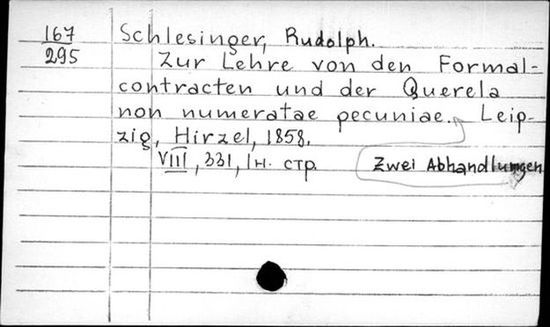 167 Schlesinger, Rudolph.
295 Zur Lehre von den Formal-
contracten und der Querela
non numeratae pecuniae. Leip-
zig, Hirzel, 1858.
VIII, 331, 1 н. стр. Zwei Abhandlungen